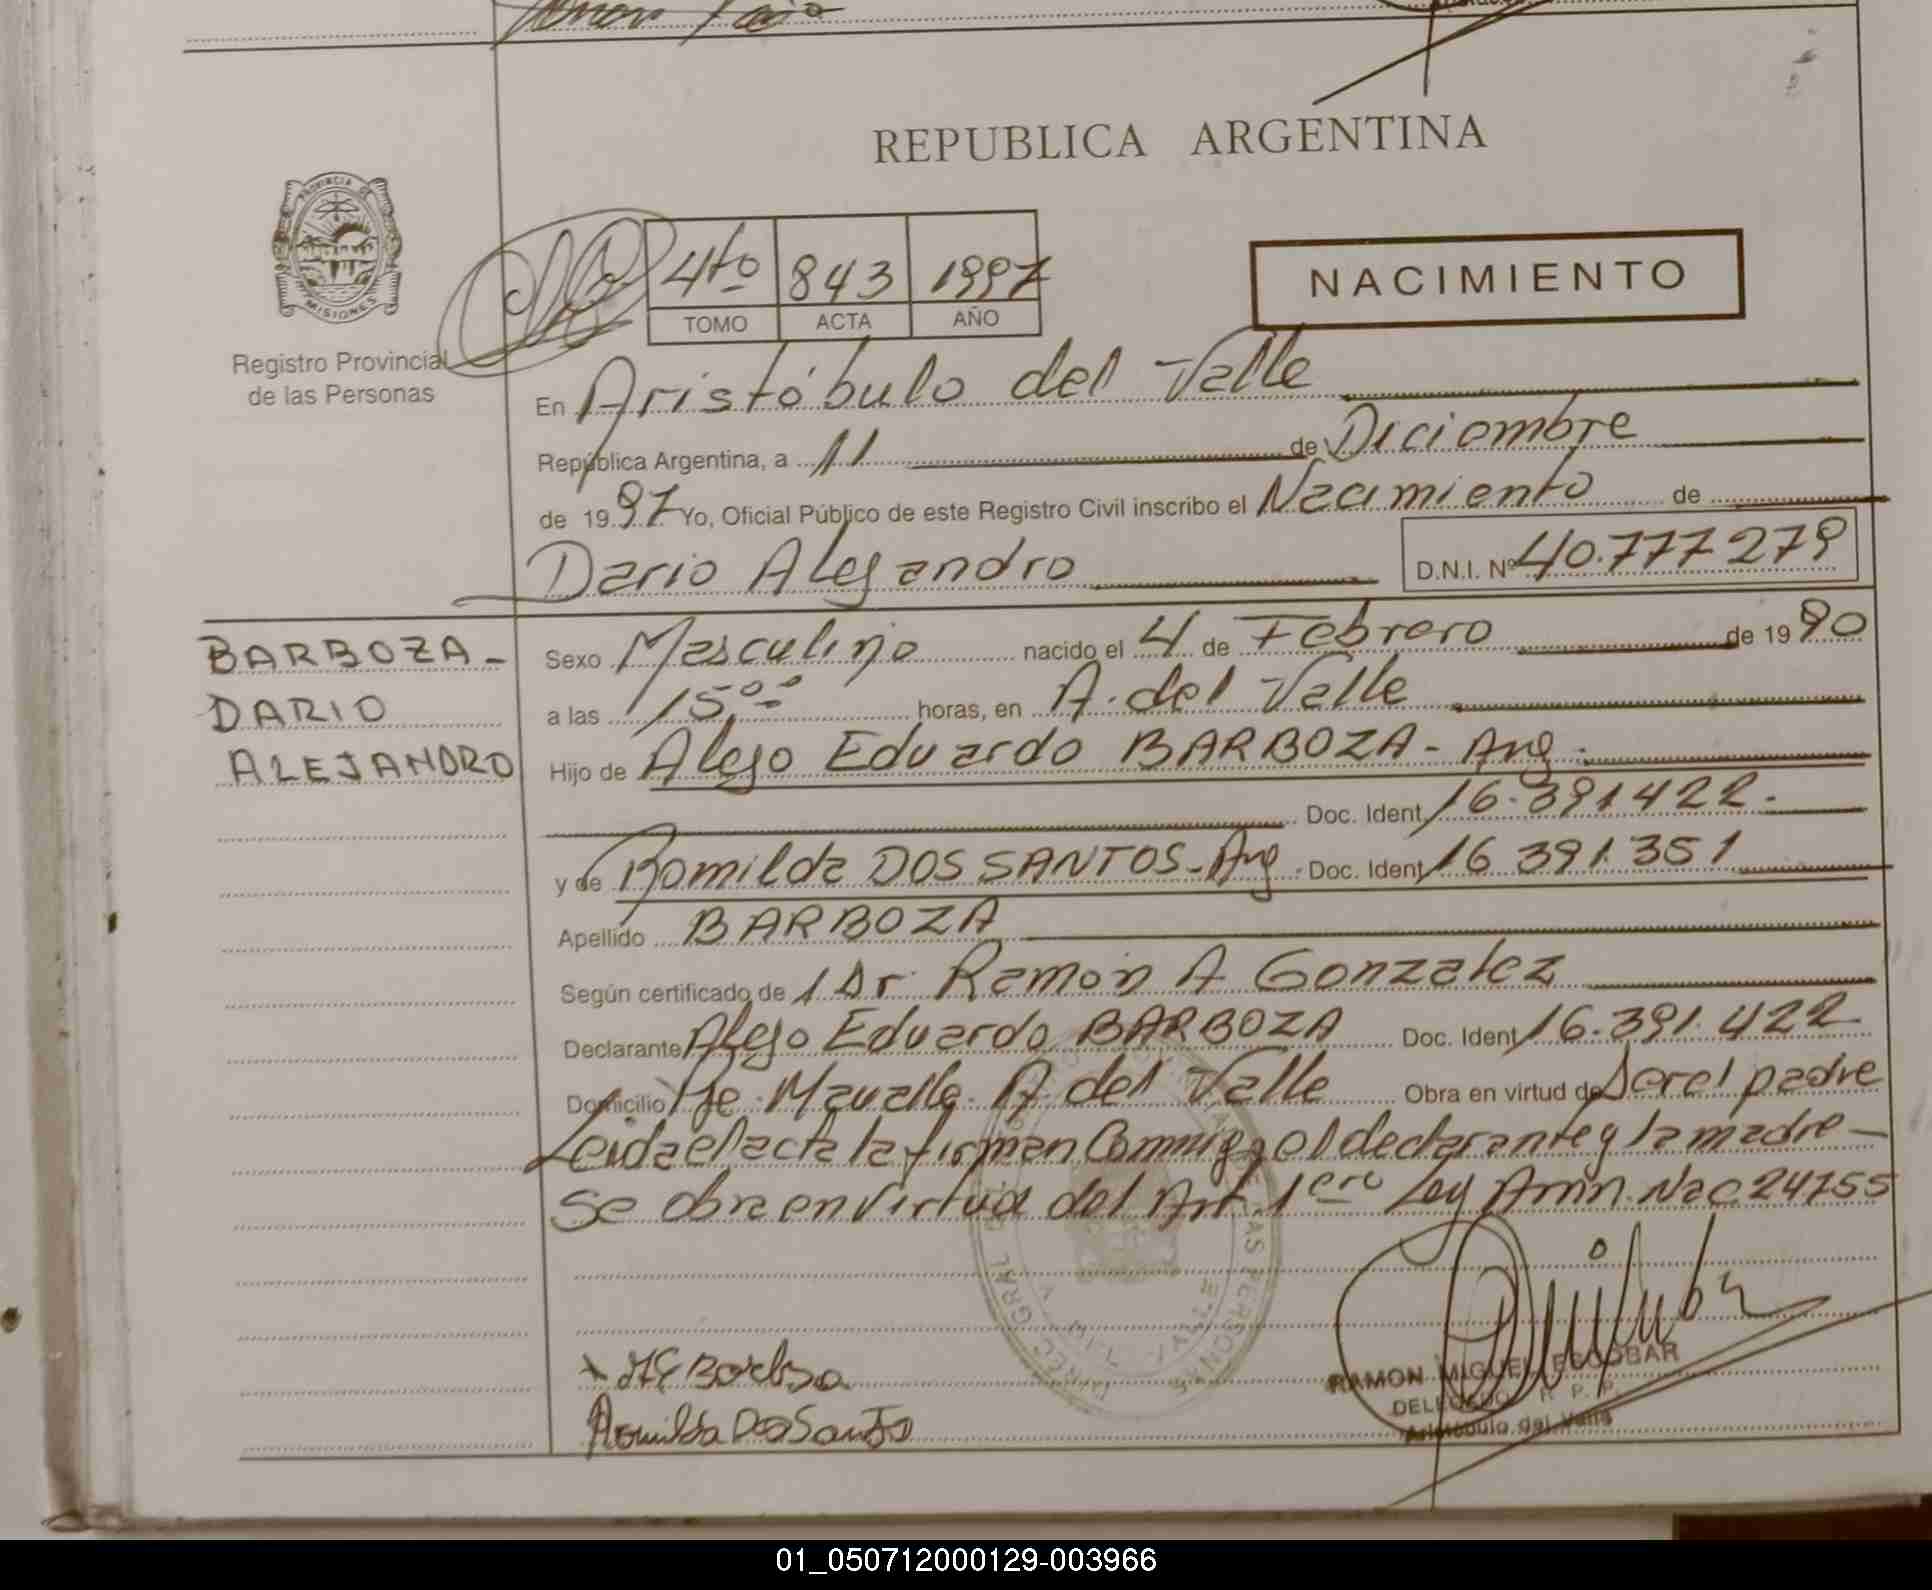 REPUBLICA ARGENTINA
PROVINCIA DE
MISIONES
Registro Provincial
de las Personas
4to 843 1997
TOMO ACTA AÑO
NACIMIENTO
En Aristóbulo del Valle
República Argentina, a 11 de Diciembre
de 1997 Yo, Oficial Público de este Registro Civil inscribo el Nacimiento de
Dario Alejandro D.N.I. Nº 40.777279
BARBOZA-
DARIO
ALEJANDRO
Sexo Masculino nacido el 4 de Febrero de 1990
a las 15,00 horas, en A. del Valle
Hijo de Alejo Eduardo BARBOZA - Arg.
Doc. Ident. 16.391422.
y de Romilda DOS SANTOS - Arg. Doc. Ident. 16 391.351
Apellido BARBOZA
Según certificado de 1 Dr. Ramón A Gonzalez
Declarante Alejo Eduardo BARBOZA Doc. Ident. 16.391.422
Domicilio A. del Valle Obra en virtud de Ser el padre
Leida el acta la firman Conmigo el declarante y la madre
Se obra en Virtud del Art 1ero Ley Amn. Nac 24755
Barboza
Romilda Dos Santos
RAMON MIGUEL ESCOBAR
DELEGADO R. P. P.
Aristóbulo del Valle
01_050712000129-003966